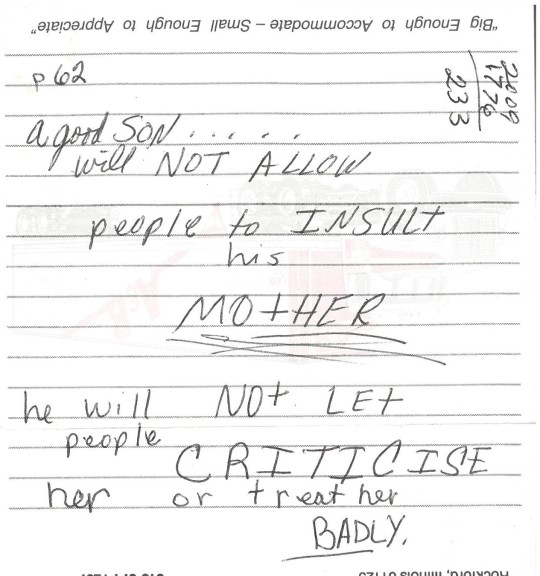 "Big Enough to Accommodate – Small Enough to Appreciate"
p 62
2009
1776
233
a good SON . . . . .
will NOT ALLOW
people to INSULt
his
MOtHER
he will NOt LEt
people
CRITICISE
her or treat her
BADLY.
Rockford, Illinois 61125